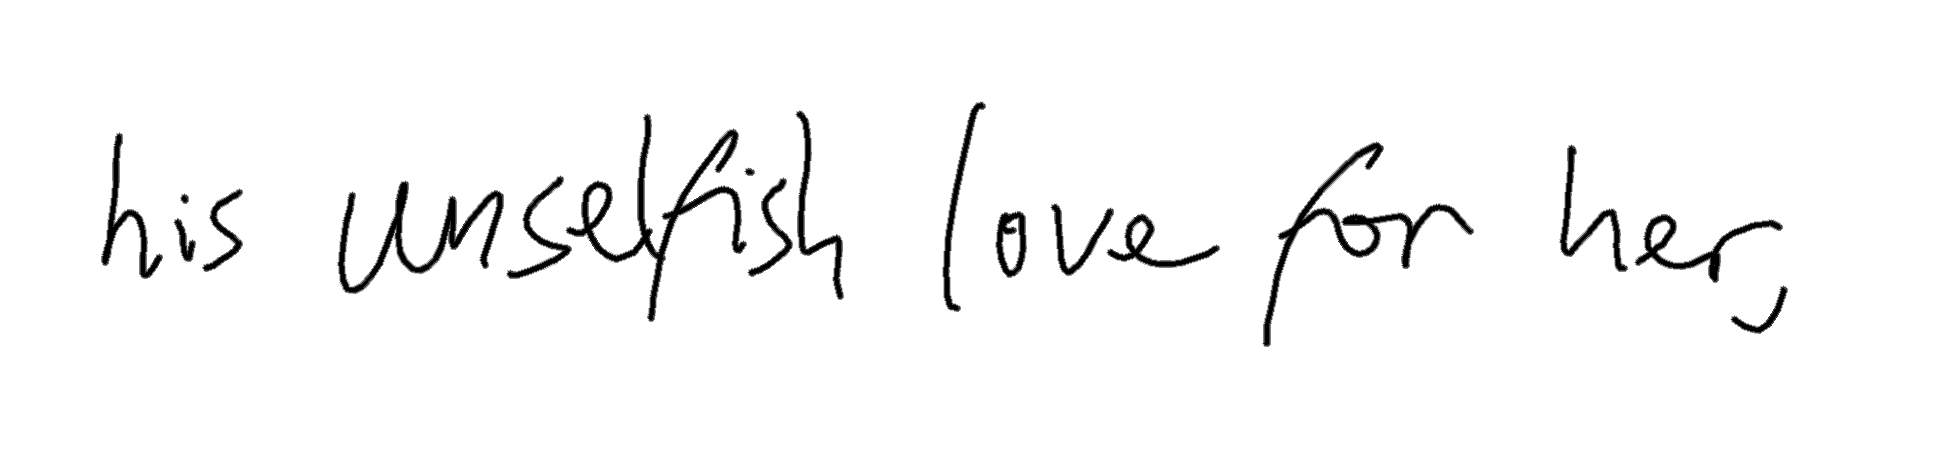 his unselfish love for her,